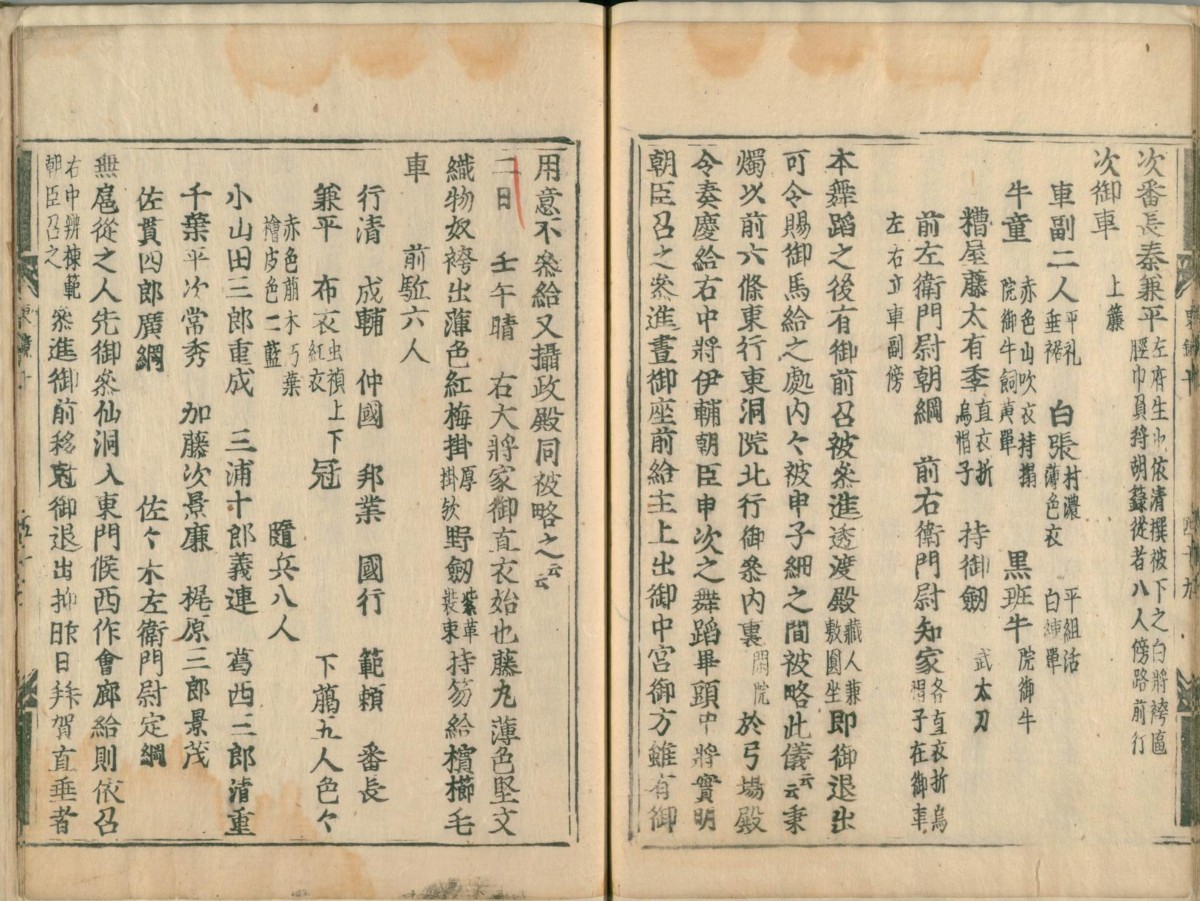 次番長秦兼平 左府生 依清撰彼下之白將袴區 脛巾員將胡籙從者八人傍路前行
次御車 上簾
車副二人 平礼 垂裾 白張 村濃 薄色衣 平組活 白練單
牛童 赤色山吹衣持搨 院御牛飼黄單 黒班牛 院御牛
糟屋藤太有季 直衣折 烏帽子 持御劔 武太刀
前左衛門尉朝綱 前右衛門尉知家 各直衣折烏 帽子在御車
左右立車副傍
本舞蹈之後有御前召被参進透渡殿 藏人兼 敷圓坐 即御退出
可令賜御馬給之處内々被申子細之間被略此儀云云秉
燭以前六條東行東洞院北行御参内裏 閑院 於弓場殿
令奏慶給右中將伊輔朝臣申次之舞蹈畢頭中將實明
朝臣召之参進晝御座前給主上出御中宮御方雖有御
用意不参給又攝政殿同被略之云云
二日 壬午晴 右大將家御直衣始也藤丸薄色堅文
織物奴袴出薄色紅梅掛 厚 掛欤 野劔 紫革 裝束 持笏給檳櫛毛
車 前駈六人
行清 成輔 仲國 邦業 國行 範頼 番長
兼平 布衣 虫襖上下 紅衣 冠 下﨟五人色々
赤色萠木朽葉 檜皮色二藍 隨兵八人
小山田三郎重成 三浦十郎義連 葛西三郎清重
千葉平次常秀 加藤次景廉 梶原三郎景茂
佐貫四郎廣綱 佐々木左衛門尉定綱
無扈從之人先御参仙洞入東門候西作會廊給則依召
右中辨棟範 朝臣召之 参進御前移尅御退出抑昨日拜賀直垂者